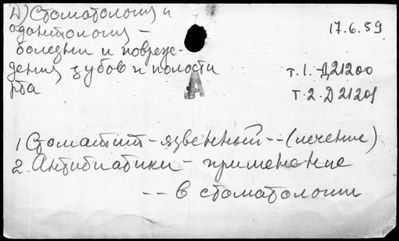 А) Стоматология и
одонтология -
болезни и повреж-
дения зубов и полости
рта
17.6.59
А
т.1.-Д21200
т.2.Д21201
1 Стоматит - язвенный -- (лечение)
2. Антибиатики - применение
-- в стоматологии